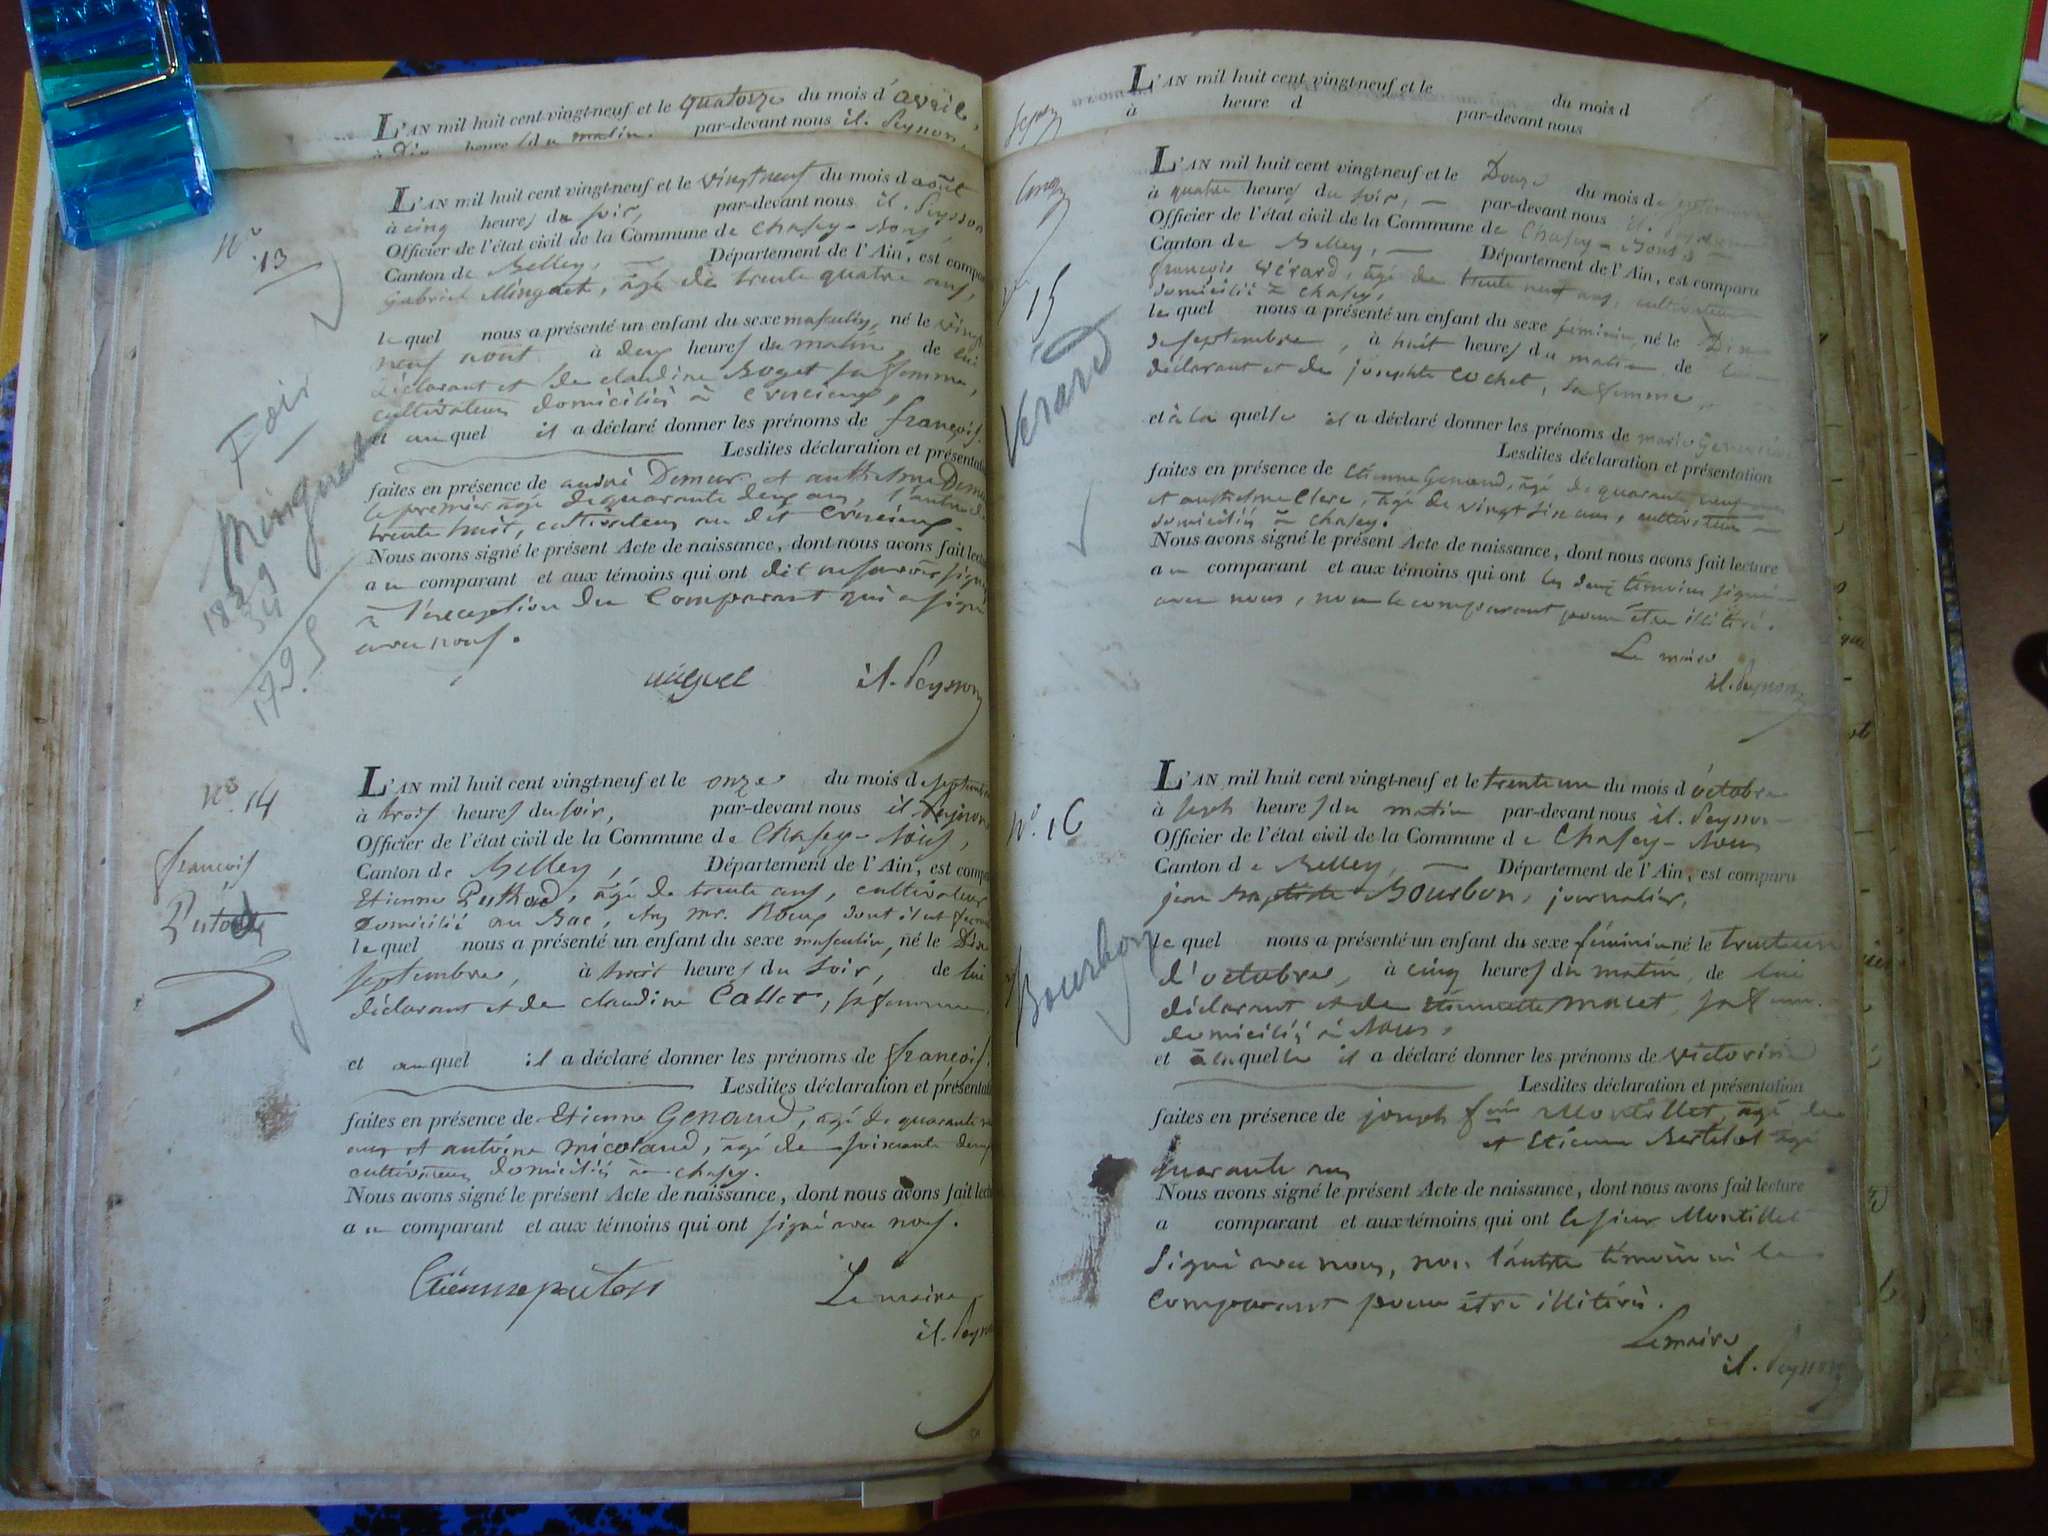 L'AN mil huit cent vingt-neuf et le quatorze du mois d'avril,
à Dix heures du matin. par-devant nous il. Peysson
N.o 13
L'AN mil huit cent vingt-neuf et le vingt neuf du mois d'août
à cinq heures du soir, par-devant nous il. Peysson
Officier de l'état civil de la Commune de Chasey-Bons,
Canton de Belley, Département de l'Ain, est compa
gabriel Minguet, âgé de trente quatre ans,
lequel nous a présenté un enfant du sexe masculin, né le vingt
neuf août à deux heures du matin, de lui
déclarant et de claudine Boget sa femme,
cultivateurs domiciliés à Cressieux,
et auquel il a déclaré donner les prénoms de françois.
Lesdites déclaration et présentat
faites en présence de andré Demeur et anthelme Demeur
le premier âgé de quarante deux ans, l'autre de
trente huit, cultivateurs au dit Cressieux.
Nous avons signé le présent Acte de naissance, dont nous avons fait lect
au comparant et aux témoins qui ont dit ne savoir signer
à l'exception du Comparant qui a signé
avec nous.
Minguet
1829
34
1795
il. Peysson
N.o 14
françois
L'AN mil huit cent vingt-neuf et le onze du mois d septembre
à trois heures du soir, par-devant nous il Peysson
Officier de l'état civil de la Commune de Chasey-Bons,
Canton de Belley, Département de l'Ain, est compa
Etienne âgé de trente ans, cultivateur
Domicilié au Bac, chez mr. Roux dont il est
lequel nous a présenté un enfant du sexe masculin, né le Dix
septembre, à heures du soir, de lui
déclarant et de claudine Callet, sa femme,
et auquel il a déclaré donner les prénoms de françois.
Lesdites déclaration et présentat
faites en présence de Etienne Genaud, âgé de quarante
ans et antoine micoland, âgé de soixante deux
cultivateurs domiciliés à chasey.
Nous avons signé le présent Acte de naissance, dont nous avons fait lect
au comparant et aux témoins qui ont signé avec nous.
Le maire
il. Peysson
L'AN mil huit cent vingt-neuf et le du mois d
à heure d par-devant nous
15
Vérard
L'AN mil huit cent vingt-neuf et le Douze du mois de septembre
à quatre heures du soir, par-devant nous il. Peysson
Officier de l'état civil de la Commune de Chasey-Bons,
Canton de Belley, Département de l'Ain, est comparu
françois Vérard, âgé de trente neuf ans, cultivateur
domicilié à Chasey,
lequel nous a présenté un enfant du sexe féminin, né le Dix
septembre, à huit heures du matin, de lui
déclarant et de josephte Cochet, sa femme,
et à laquelle il a déclaré donner les prénoms de marie
Lesdites déclaration et présentation
faites en présence de Etienne Genaud, âgé de quarante neuf ans
et anthelme Clerc, âgé de vingt six ans, cultivateurs
domiciliés à chasey.
Nous avons signé le présent Acte de naissance, dont nous avons fait lecture
au comparant et aux témoins qui ont les deux témoins signé
avec nous, non le comparant pour être illitéré.
Le maire
il. Peysson
N.o 16
Bourbon
L'AN mil huit cent vingt-neuf et le trente un du mois d'octobre
à sept heures du matin par-devant nous il. Peysson
Officier de l'état civil de la Commune de Chasey-Bons
Canton de Belley, Département de l'Ain, est comparu
jean baptiste Bourbon, journalier,
lequel nous a présenté un enfant du sexe féminin né le trente un
d'octobre, à cinq heures du matin, de lui
déclarant et de macet, sa femme.
domiciliés à Bons,
et à laquelle il a déclaré donner les prénoms de victorine
Lesdites déclaration et présentation
faites en présence de joseph Montillet, âgé de
et Etienne Bertelot âgé
quarante ans
Nous avons signé le présent Acte de naissance, dont nous avons fait lecture
a comparant et aux témoins qui ont le sieur Montillet
signé avec nous, non l'autre témoin ni le
comparant pour être illitérés.
Le maire
il. Peysson